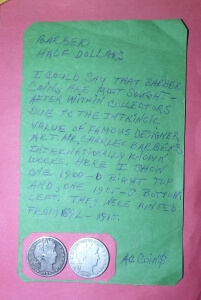 BARBER
HALF DOLLARS
I COULD SAY THAT BARBER
COINS ARE MOST SOUGHT-
AFTER WITHIN COLLECTORS
DUE TO THE INTRINSIC
VALUE OF FAMOUS DESIGNER
ART MR. CHARLES BARBER'S
INTERNATIONALLY KNOWN
WORK. HERE I SHOW
ONE 1900-O RIGHT TOP
AND, ONE 1905-S BOTTOM
LEFT. THEY WERE MINTED
FROM 1892-1915.
AC COINS